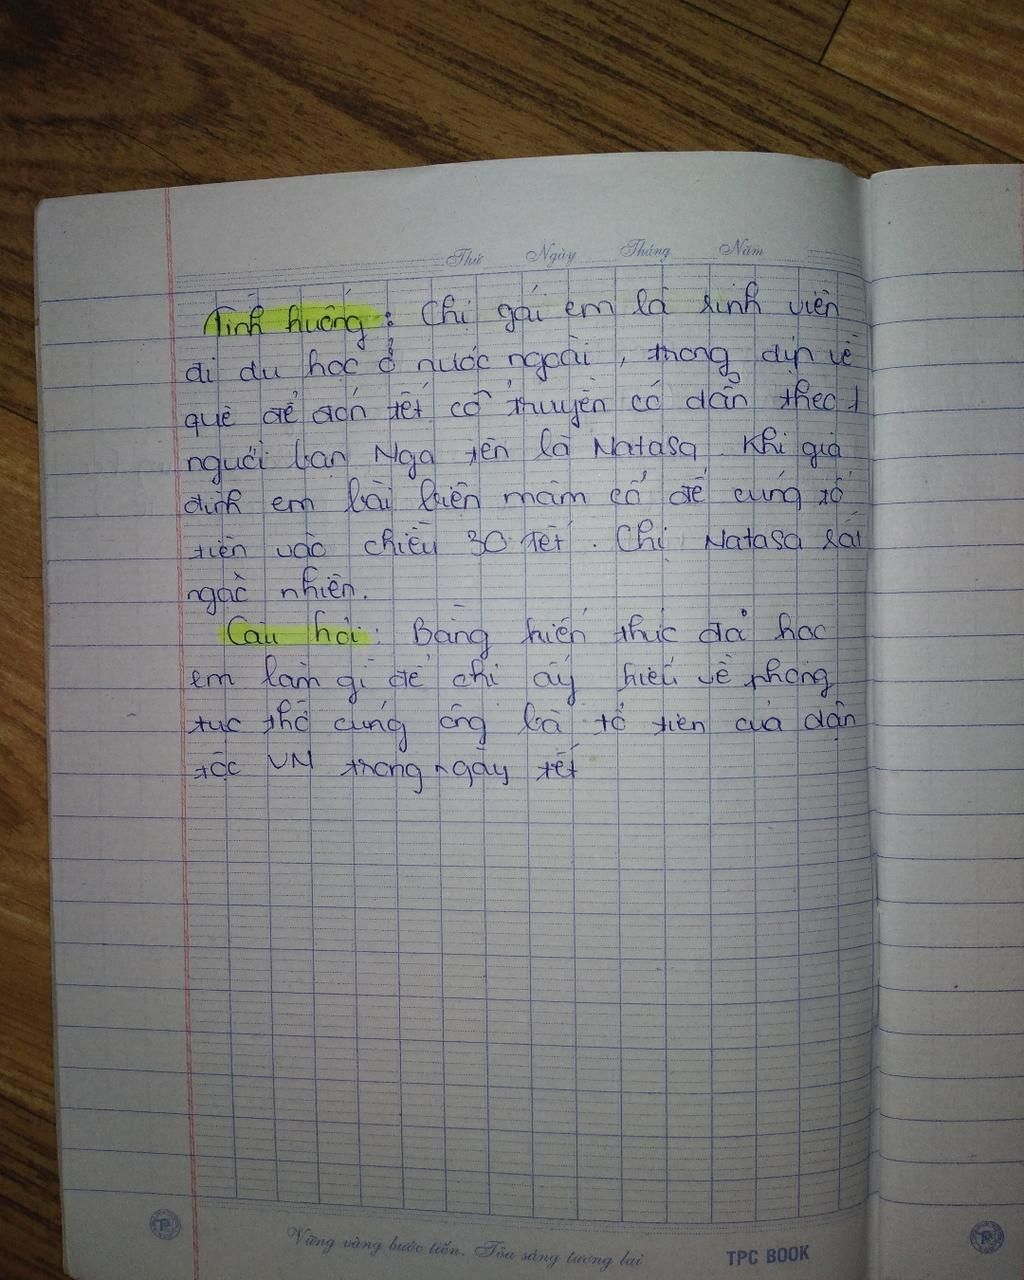 Thứ Ngày Tháng Năm
Tình huống: Chị gái em là sinh viên
đi du học ở nước ngoài, trong dịp về
quê để đón tết cổ truyền có dẫn theo 1
người bạn Nga tên là Natasa. Khi gia
đình em bài biện mâm cỗ để cúng tổ
tiên vào chiều 30 tết. Chị Natasa rất
ngạc nhiên.
Câu hỏi: Bằng kiến thức đã học
em làm gì để chị ấy hiểu về phong
tục thờ cúng ông bà tổ tiên của dân
tộc VN trong ngày tết
Vững vàng bước tiến. Tỏa sáng tương lai
TPC BOOK